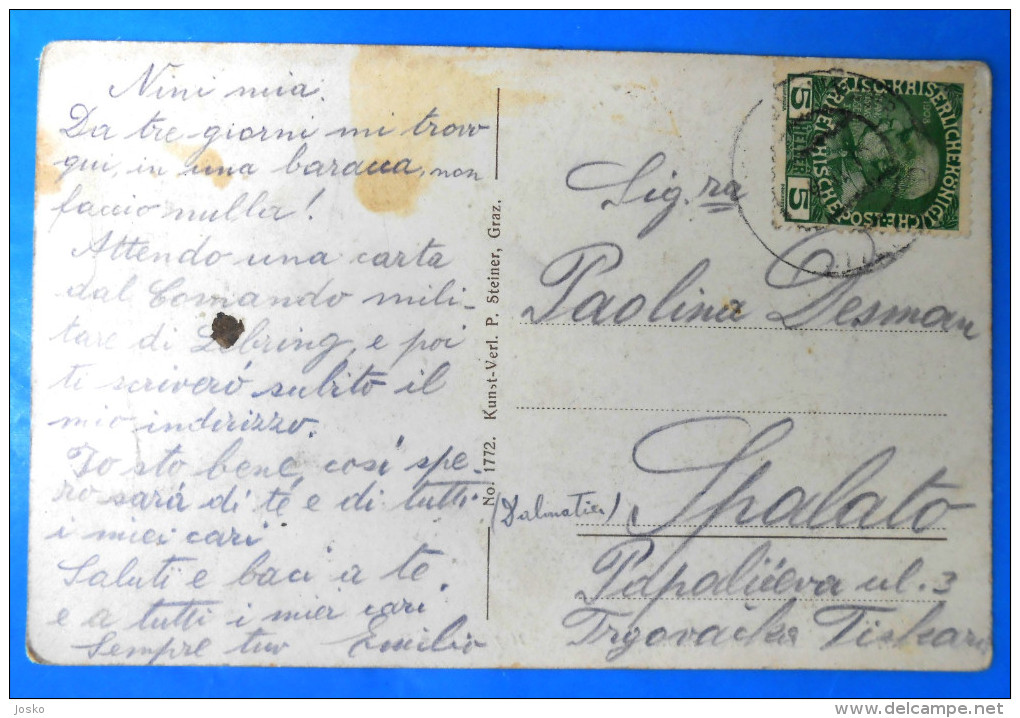 Nini mia.
Da tre giorni mi trovo
qui, in una baracca, non
faccio nulla!
Attendo una carta
dal Comando mili-
tare di Lebring, e poi
ti scriveró subito il
mio indirizzo.
Io sto bene, cosí spe-
ro sará di té e di tutti
i miei cari
Saluti e baci a te.
e a tutti i miei cari
Sempre tuo Emilio
No. 1772. Kunst-Verl. P. Steiner, Graz.
Sig.ra
Paolina Desman
(Dalmatien)
Spalato
Papalićeva ul. 3
Trgovačka Tiskara
KAISERLICHE KÖNIGLICHE ÖSTERREICHISCHE POST
5 HELLER 5
Josko
delcampe.net